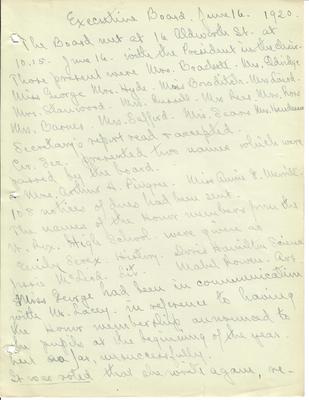 Executive Board. June 16. 1920.
The Board met at 16 Aldworth St. at
10.15. June 16. with the President in the chair.
Those present were Mrs. Brackett. Mrs. Eldridge
Miss George Mrs. Hyde. Miss Bowditch. Mrs.
Mrs. Stanwood. Mrs. Russell. Mrs Rees. Mrs. Ross
Mrs. Barnes. Mrs. Safford. Mrs. Sears Mrs. Henderson
Secretary's report read & accepted.
Cor. Sec. presented two names which were
passed by the board.
Mrs. Arthur A. Pingree. Miss Annie F. Merrill.
108 notices of dues had been sent.
The names of the Honor members from the
W. Rox. High School were given as
Emily History. Doris Hamilton Science
Jessie McLeod. Lit. Mabel Art.
Miss George had been in communication
with Mr. Lacey. in reference to having
the Honor membership announced to
the pupils at the beginning of the year.
but so far, unsuccessfully.
It was voted that she write again, re-